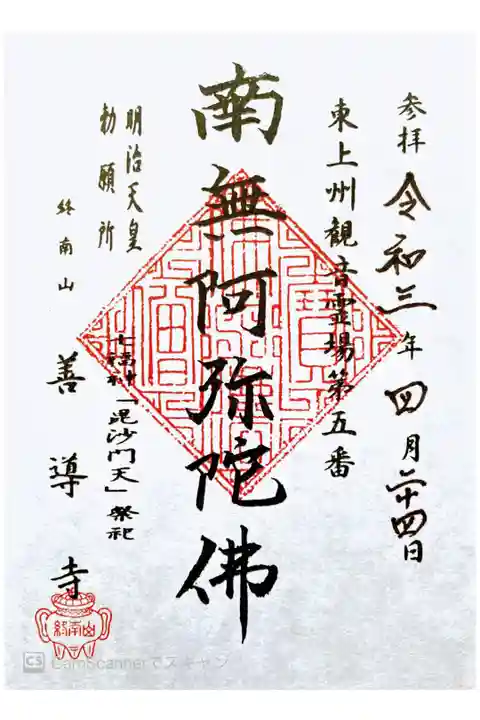 参拝 令和三年四月二十四日
東上州観音霊場第五番
南無阿弥陀佛
七福神「毘沙門天」祭祀
明治天皇
勅願所
終南山
善導寺
終南山
CS CamScannerでスキャン